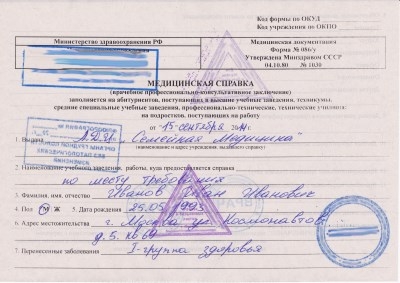 Код формы по ОКУД
Код учреждения по ОКПО
Министерство здравоохранения РФ
Медицинская документация
Форма № 086/у
Утверждена Минздравом СССР
04.10.80 № 1030
МЕДИЦИНСКАЯ СПРАВКА
(врачебное профессионально-консультативное заключение)
заполняется на абитуриентов, поступающих в высшие учебные заведения, техникумы,
средние специальные учебные заведения, профессионально-технические, технические училища;
на подростков, поступающих на работу
от 15 сентября
1. Выдана "Семейная Медицина"
(наименование и адрес учреждения, выдавшего справку)
2. Наименование учебного заведения, работы, куда предоставляется справка
по месту требования
3. Фамилия, имя, отчество Иванов Иван Иванович
4. Пол М Ж 5. Дата рождения 25.05.1993
6. Адрес местожительства г. Москва ул. Космонавтов
д. 5. кв. 69
7. Перенесенные заболевания I-группа здоровья